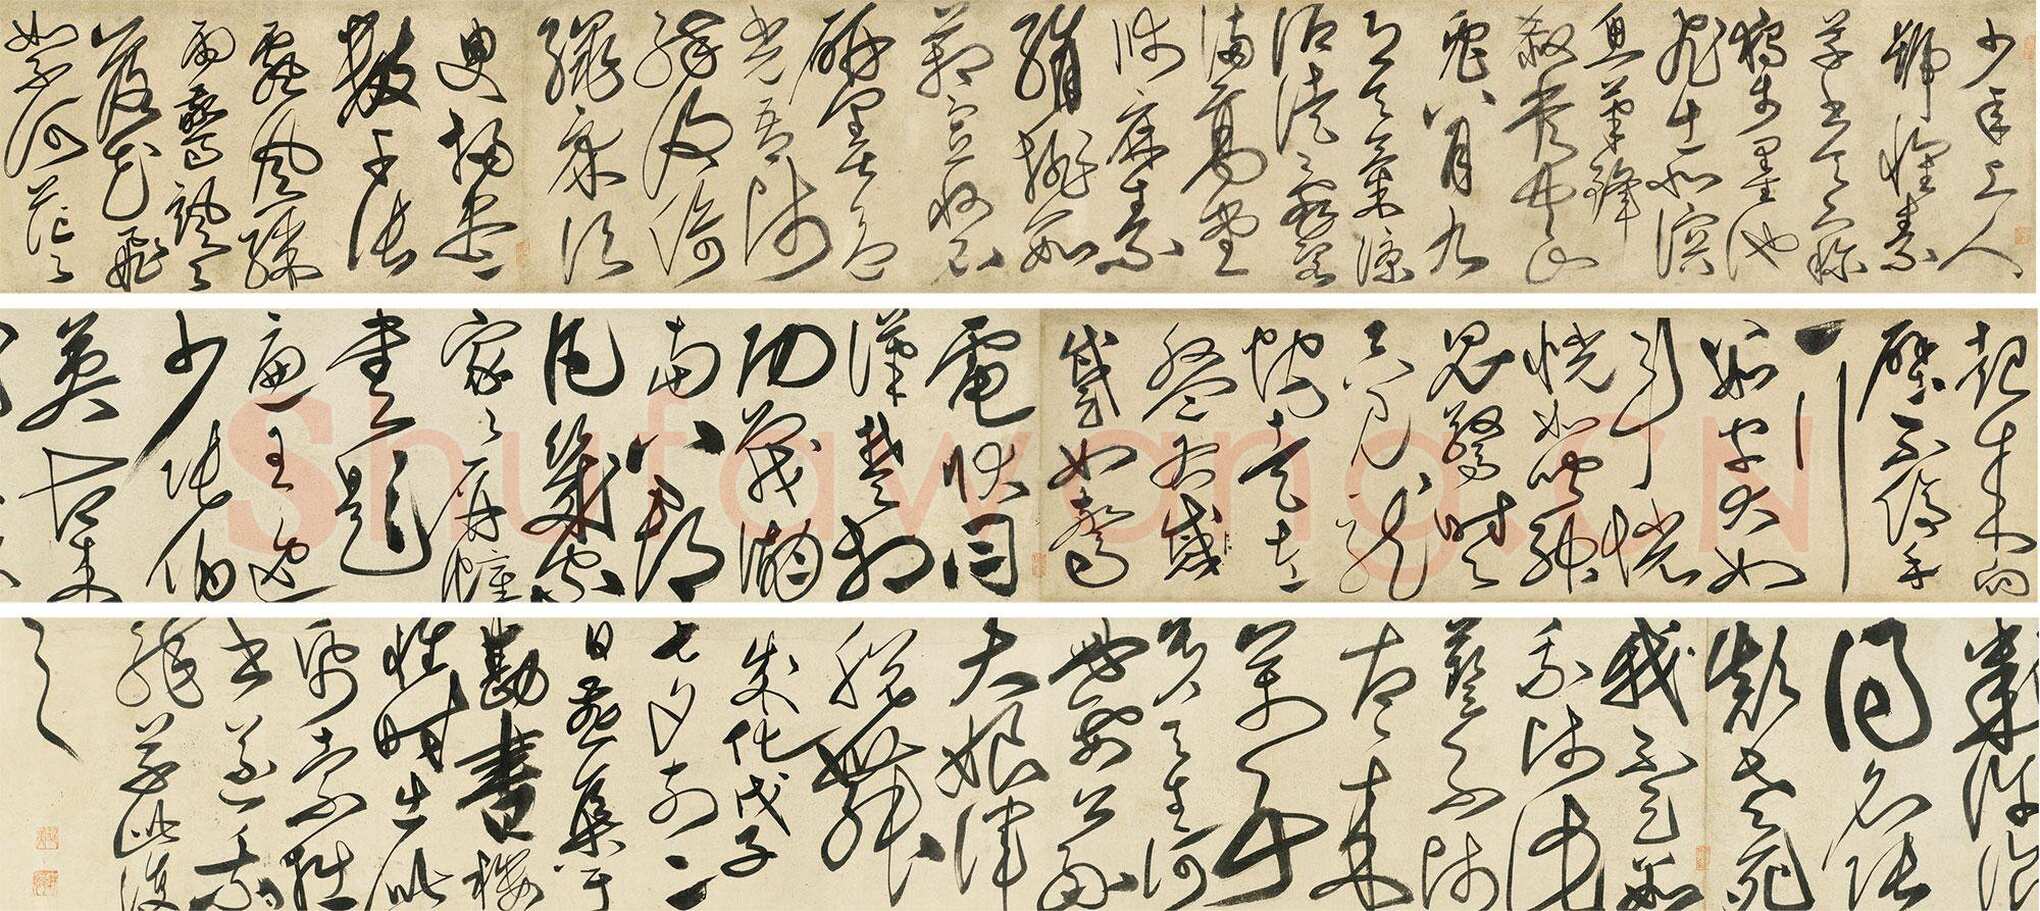 少年上人
號懷素
草書天下稱
獨步墨池
飛出北溟
魚筆鋒
殺盡中山
兔八月九
月天氣涼
酒徒詞客
滿高堂
牋麻素
絹排數
箱宣州石
硯墨色
光吾師
醉後倚
繩床須
臾掃盡
數千張
飄風驟
雨驚颯々
落花飛
雪何茫々
起來向
壁不停手
一行
數字大如
斗怳
怳如聞神
鬼驚時々
只見龍
蛇走左
盤右蹙
如驚
電狀同
漢楚相
攻戰湖
南八郡
凡幾家
家々屏幛
書題
遍王逸
少張伯
英古來
幾許浪
得名張
顛老死
不足數
我師此
義不師
古古來
萬事
貴天生何
必要公孫
大娘渾
脫舞
成化戊子
七夕前二
日燕集于
勘書樓
性時出此
紙索拙
書遂爲
草此復
之
Shufawang.CN